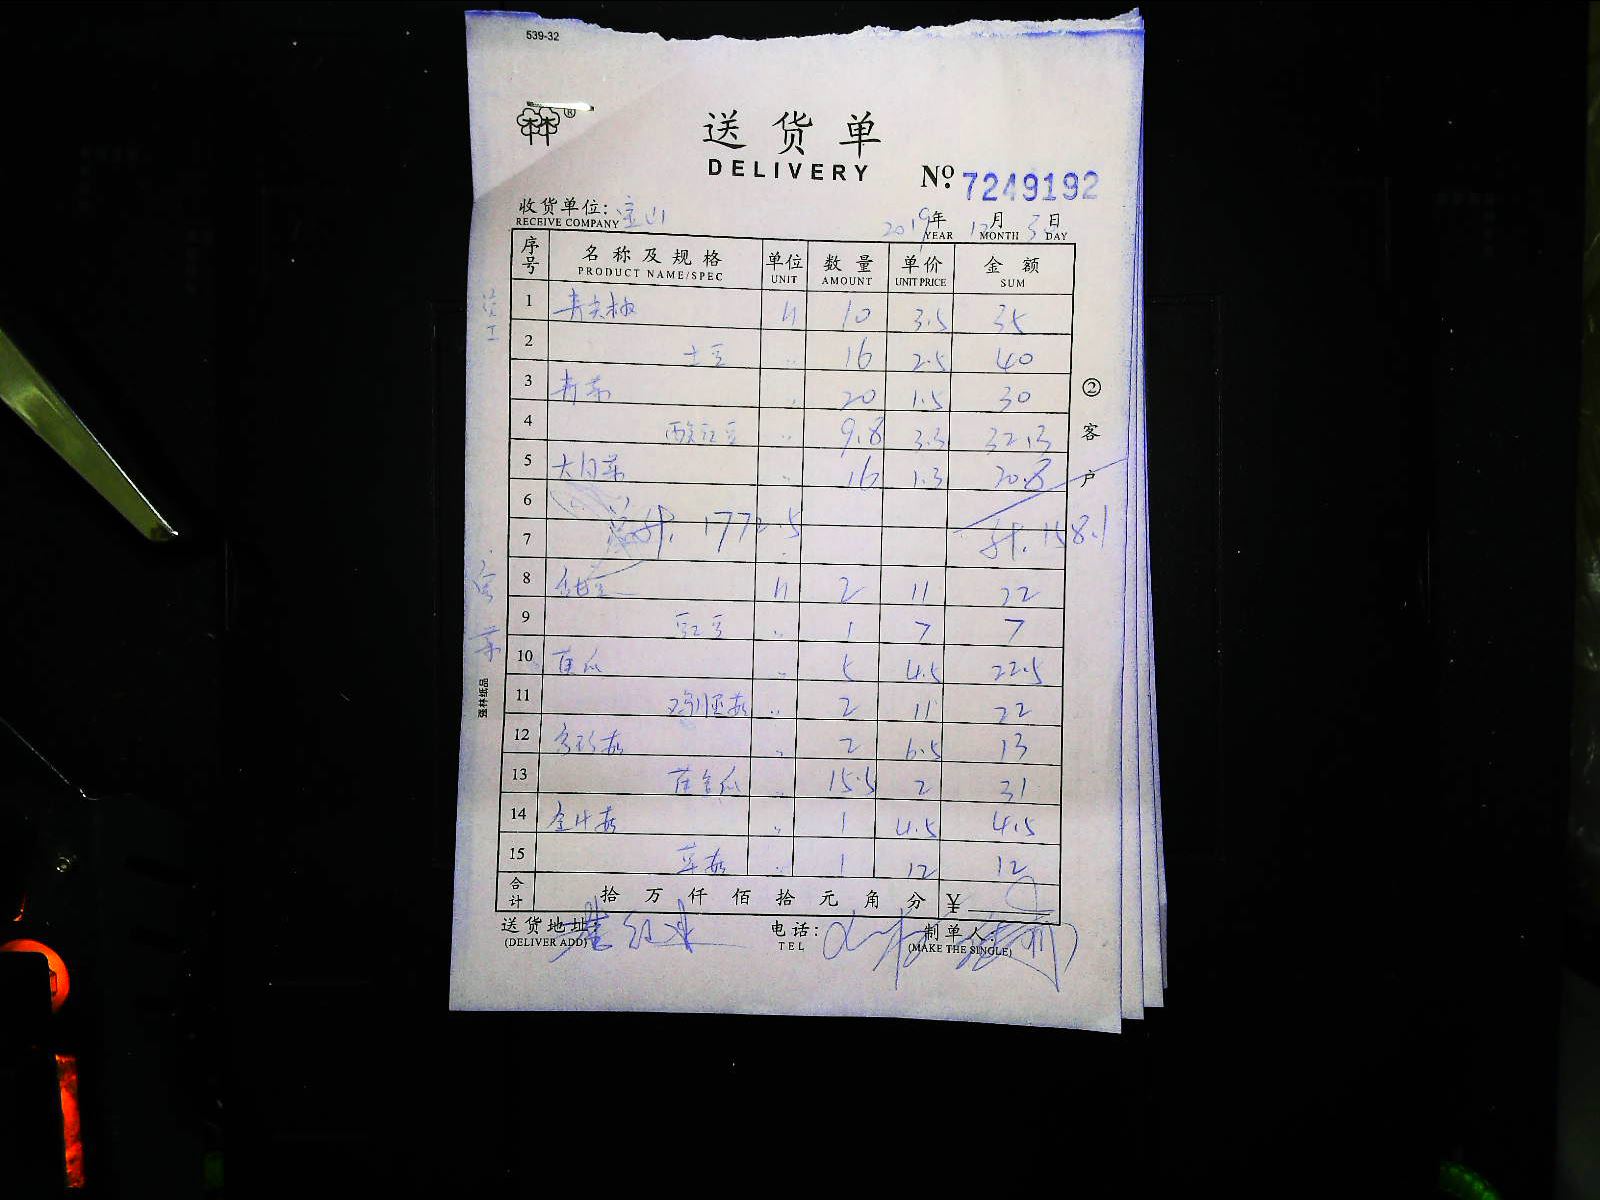 539-32
送货单
DELIVERY
№ 7249192
收货单位: 宝山 2019年 12月 3日
RECEIVE COMPANY YEAR MONTH DAY
序号 名称及规格 单位 数量 单价 金额
PRODUCT NAME/SPEC UNIT AMOUNT UNIT PRICE SUM
员工
1 青尖椒 斤 10 3.5 35
2 土豆 〃 16 2.5 40
3 青菜 〃 20 1.5 30
4 酸豇豆 〃 9.8 3.3 32.3
5 大白菜 〃 16 1.3 20.8
6
7 总计. 1772.5 计. 158.1
8 2 11 22
9 豇豆 〃 1 7 7
10 黄瓜 〃 5 4.5 22.5
11 鸡腿菇 〃 2 11 22
12 秀珍菇 〃 2 6.5 13
13 黄金瓜 〃 15.5 2 31
14 金针菇 〃 1 4.5 4.5
15 草菇 〃 1 12 12
合计 拾 万 仟 佰 拾 元 角 分 ¥
送货地址: 电话: 制单人:
(DELIVER ADD) TEL (MAKE THE SINGLE)
② 客户
强林纸品